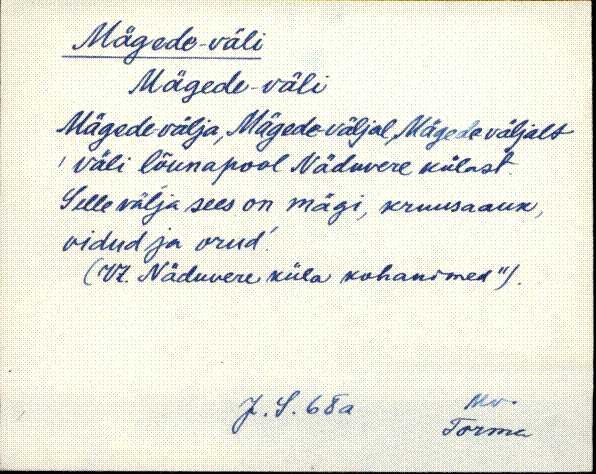 Mägede-väli
Mägede-väli
Mägede-välja, Mägede-väljal, Mägede väljalt
'väli lõunapool Näduvere külast.
Selle välja sees on mägi, kruusaauk,
vidud ja orud.'
(Vt. Näduvere küla kohanimed").
J. S. 68a
Torma